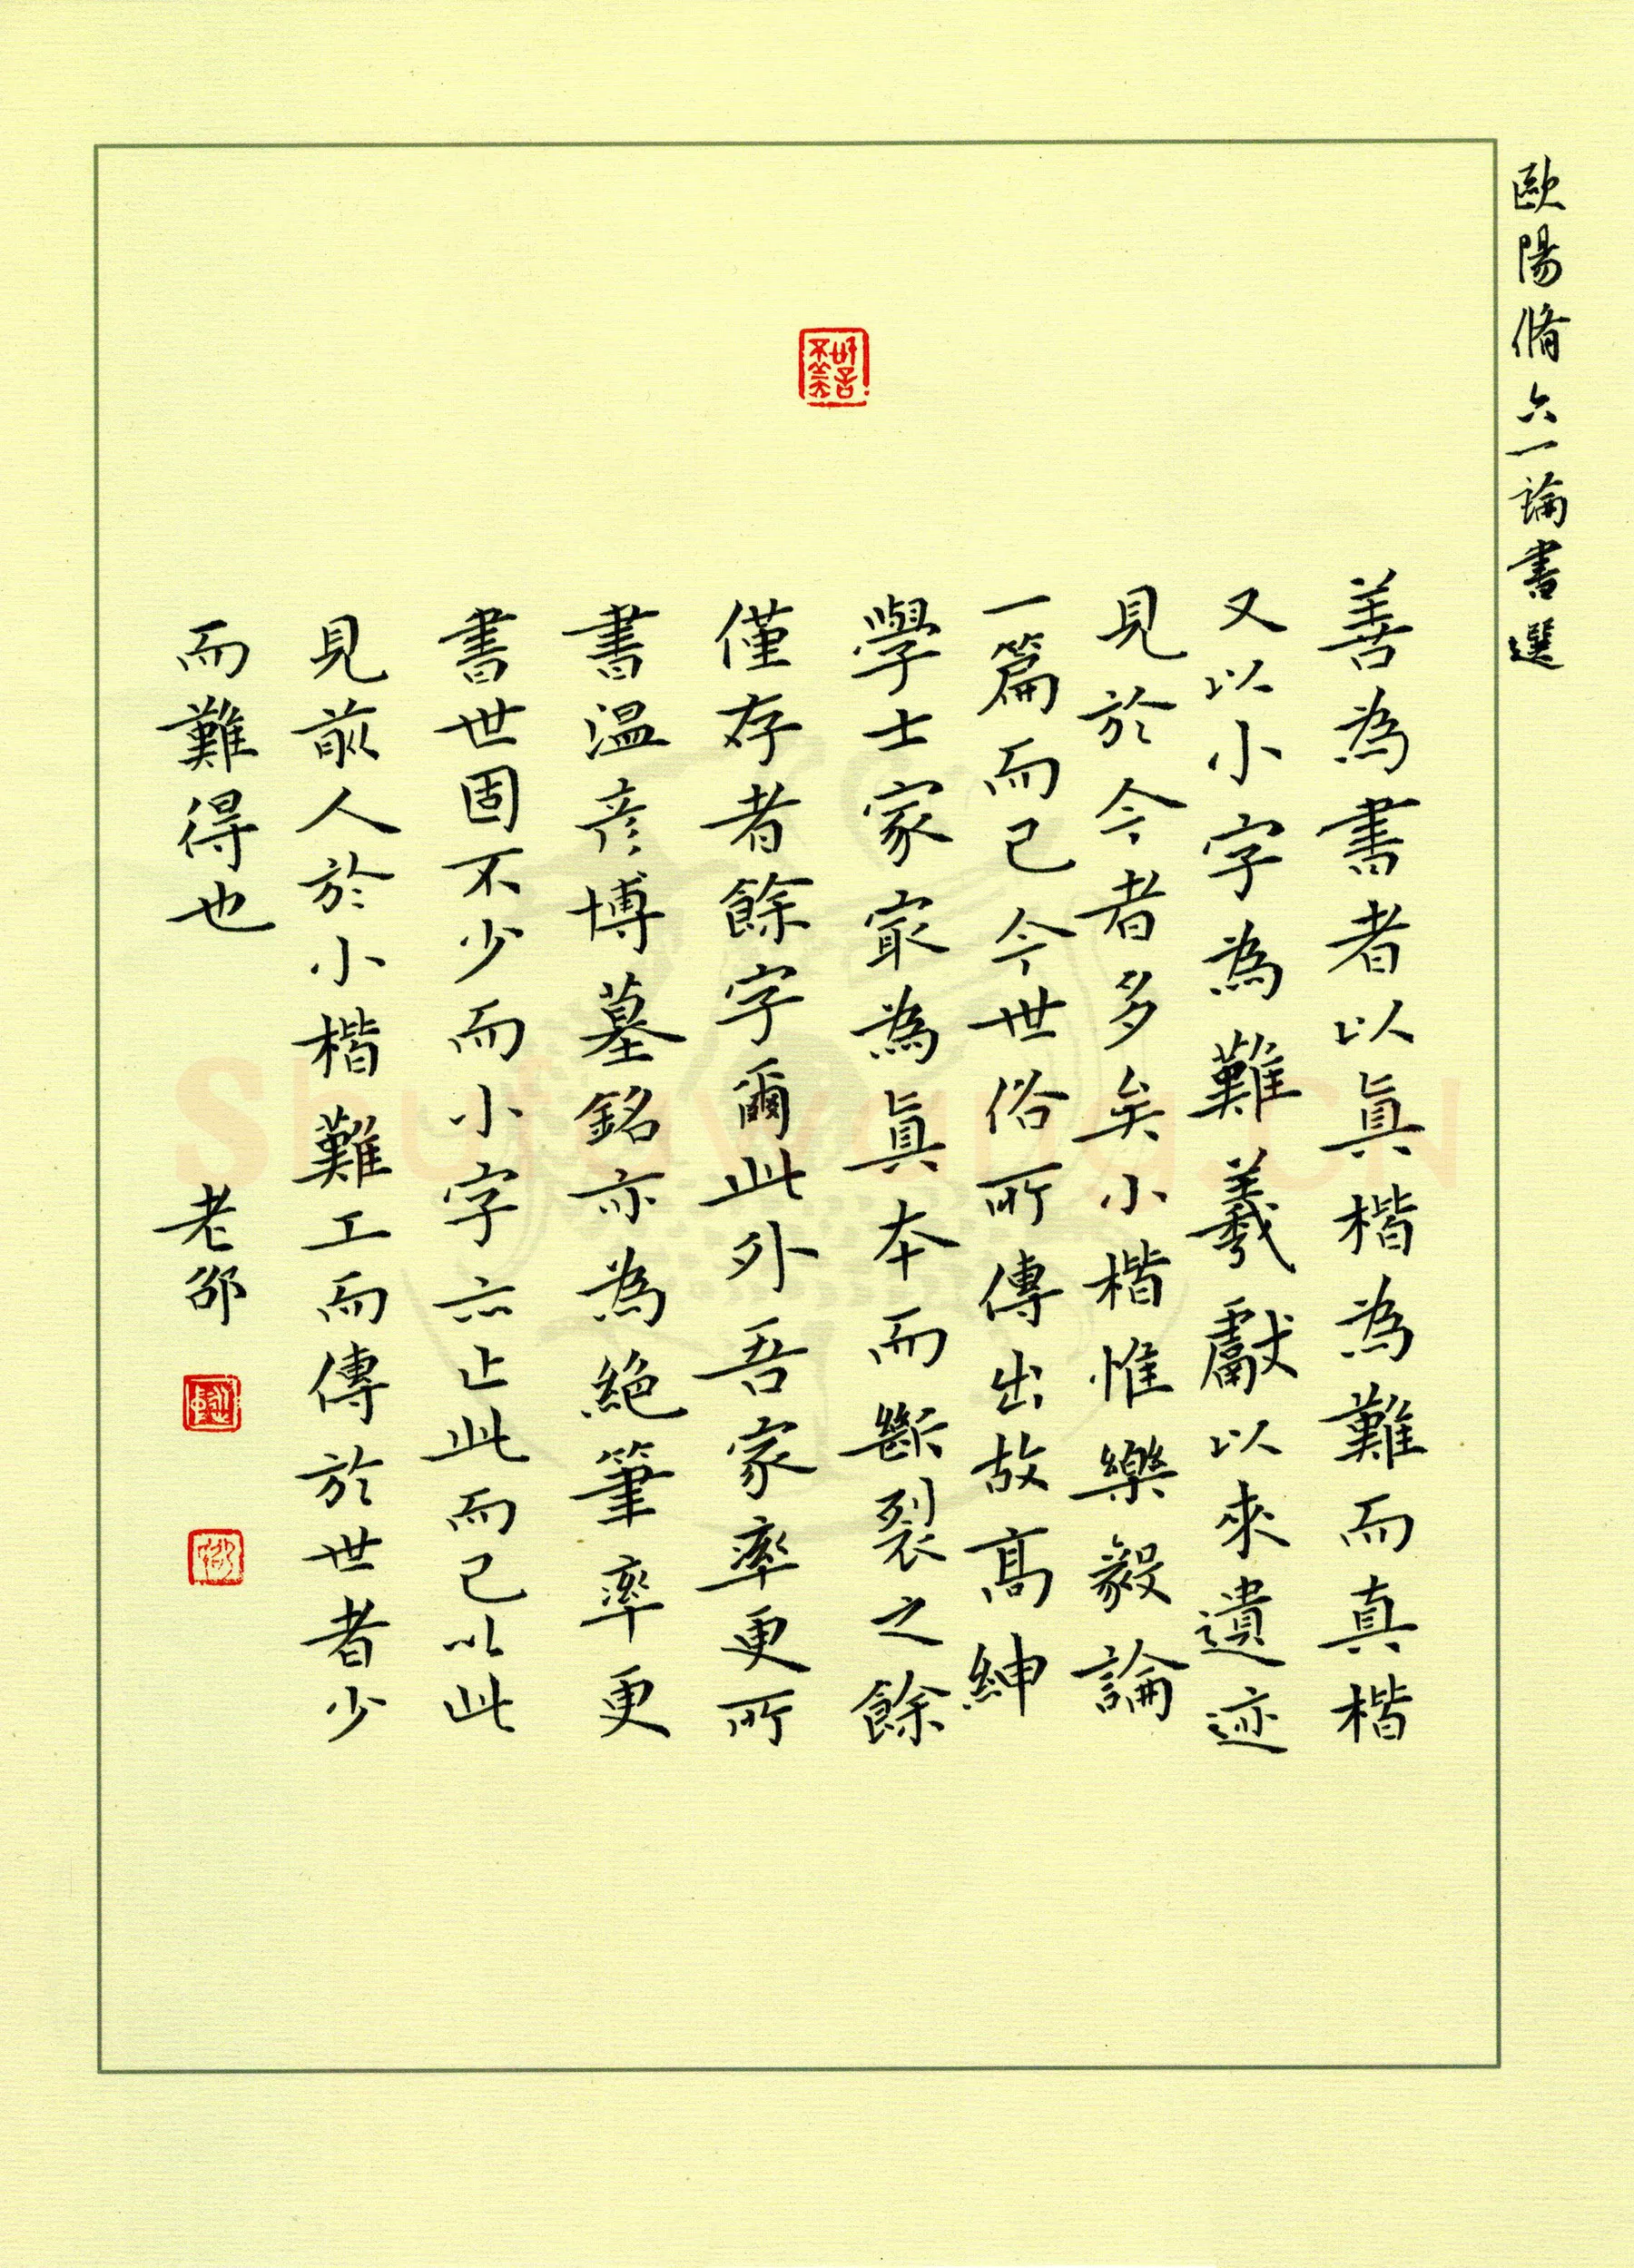 歐陽脩六一論書選
善為書者以真楷為難而真楷
又以小字為難羲獻以來遺迹
見於今者多矣小楷惟樂毅論
一篇而已今世俗所傳出故高紳
學士家最為真本而斷裂之餘
僅存者餘字爾此外吾家率更所
書溫彥博墓銘亦為絕筆率更
書世固不少而小字亦止此而已以此
見前人於小楷難工而傳於世者少
而難得也
老邵